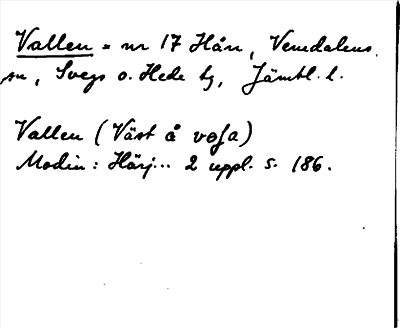 Vallen = nr 17 Hån, Vemdalens
sn, Svegs o. Hede tg, Jämtl. l.
Vallen (Väst å vɷʃa)
Modin: Härj... 2 uppl. s. 186.